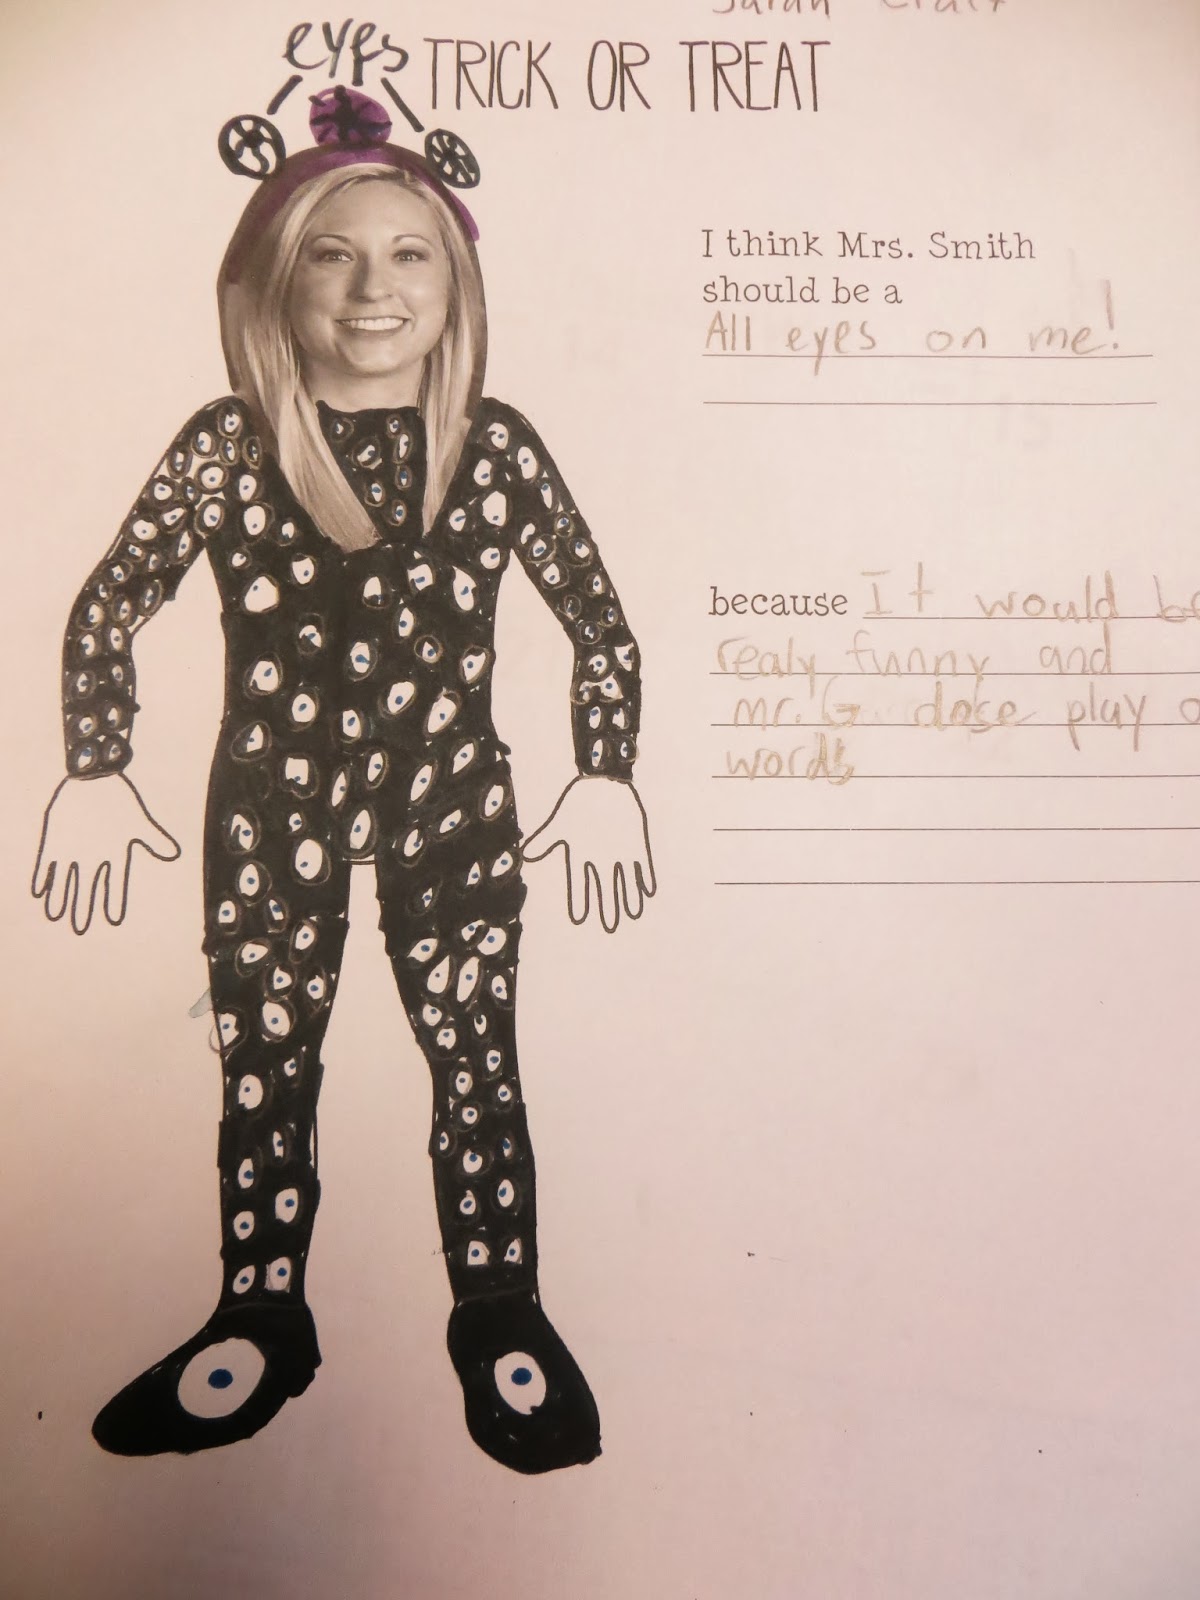 Sarah
eyes TRICK OR TREAT
I think Mrs. Smith
should be a
All eyes on me!
because It would be
realy funny and
mr. G dose play o
words